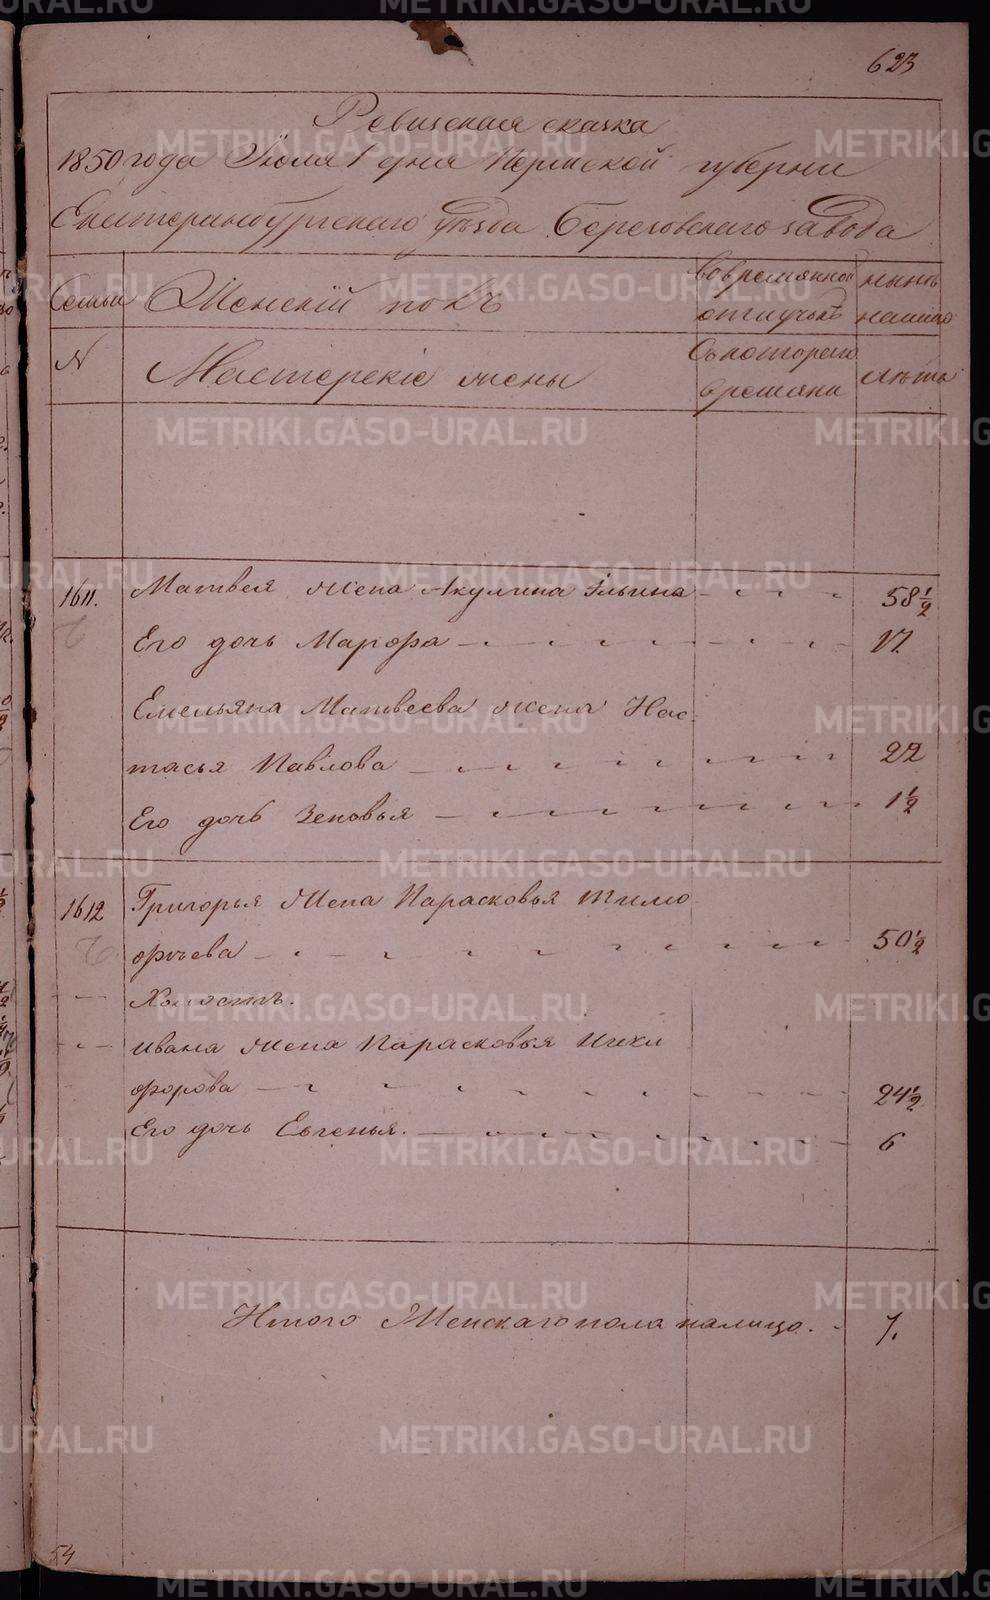 623
Ревизская сказка
1850 года Июля 1 дня Пермской губернии
Екатеринбургского уезда Березовского завода
Семьи Женскій полъ Во временной отлучкѣ нынѣ налицо
№ Мастерскіе жены Съ которого времяни лѣта
1611. Матвея жена Акулина Ильина 58 1/2
Его дочь Марфа 17.
Емельяна Матвеева жена Нас-
тасья Павлова 22
Его дочь Зеновья 1 1/2
1612 Григорья жена Парасковья Тимо
фѣева 50 1/2
Холостъ.
Ивана жена Парасковья Ники
форова 24 1/2
Его дочь Евгенья. 6
Итого Женскаго пола налицо. 7.
54
METRIKI.GASO-URAL.RU